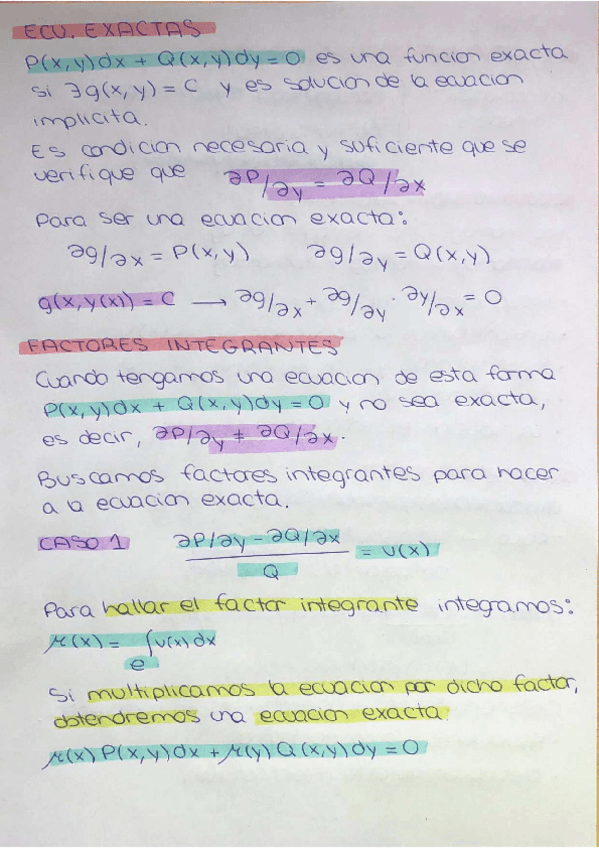 ECU. EXACTAS
P(x,y)dx + Q(x,y)dy = 0 es una funcion exacta
si ∃g(x,y) = C y es solucion de la ecuacion
implicita.
Es condicion necesaria y suficiente que se
verifique que ∂P/∂y = ∂Q/∂x
Para ser una ecuacion exacta:
∂g/∂x = P(x,y) ∂g/∂y = Q(x,y)
g(x,y(x)) = C → ∂g/∂x + ∂g/∂y · ∂y/∂x = 0
FACTORES INTEGRANTES
Cuando tengamos una ecuacion de esta forma
P(x,y)dx + Q(x,y)dy = 0 y no sea exacta,
es decir, ∂P/∂y ≠ ∂Q/∂x.
Buscamos factores integrantes para hacer
a la ecuacion exacta.
CASO 1 (∂P/∂y - ∂Q/∂x)/Q = u(x)
Para hallar el factor integrante integramos:
μ(x) = e^∫u(x)dx
Si multiplicamos la ecuacion por dicho factor,
obtendremos una ecuacion exacta.
μ(x)P(x,y)dx + μ(y)Q(x,y)dy = 0